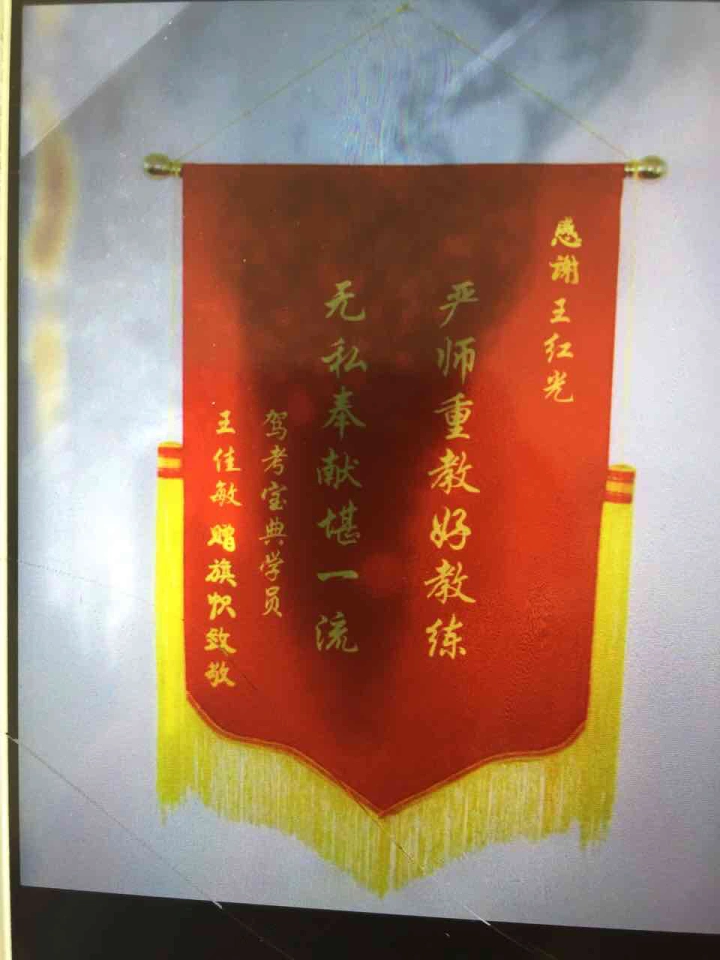 感謝王红光
严师重教好教练
无私奉献堪一流
驾考宝典学员
王佳敏赠旗帜致敬